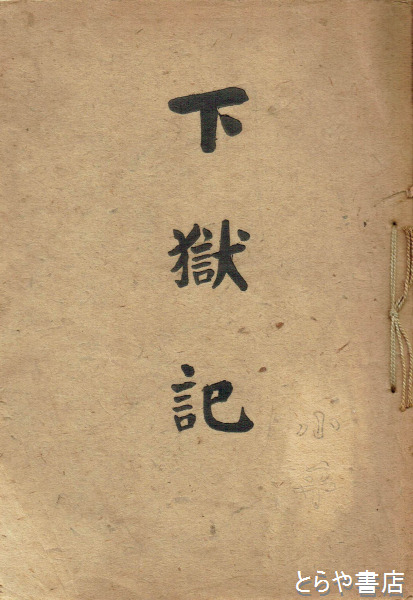 下獄記
小平
とらや書店